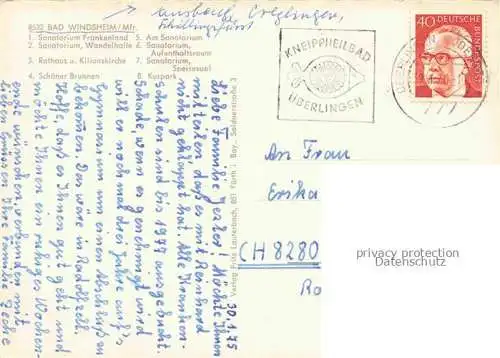 Ansbach, Creglingen,
Schillingsfürst
8532 BAD WINDSHEIM/Mfr.
1. Sanatorium Frankenland
2. Sanatorium, Wandelhalle
3. Rathaus u. Kilianskirche
4. Schöner Brunnen
5. Am Sanatorium
6. Sanatorium, Aufenthaltsraum
7. Sanatorium, Speisesaal
8. Kurpark
KNEIPPHEILBAD
ÜBERLINGEN
40
DEUTSCHE
BUNDESPOST
777
30.1.75
Liebe Familie! Möchte Ihnen
mitteilen daß es mit Reinhard
nicht geklappt hat. Alle Kranken-
schulen sind bis 1977 ausgebucht.
Schade, wenn es genehmigt wird
will er nochmal drei Jahre auf's
um ein
bekommen. Das wäre in Radolfzell.
Hoffe, daß es Ihnen gut geht und
möchte Ihnen ein ruhiges Wochen-
ende wünschen, verbunden mit
lieben Grüssen Ihre Familie
Verlag Fritz Lauterbach, 851 Fürth i. Bay., Soldnerstraße 3
An Frau
Erika
CH 8280
Ro
privacy protection
Datenschutz